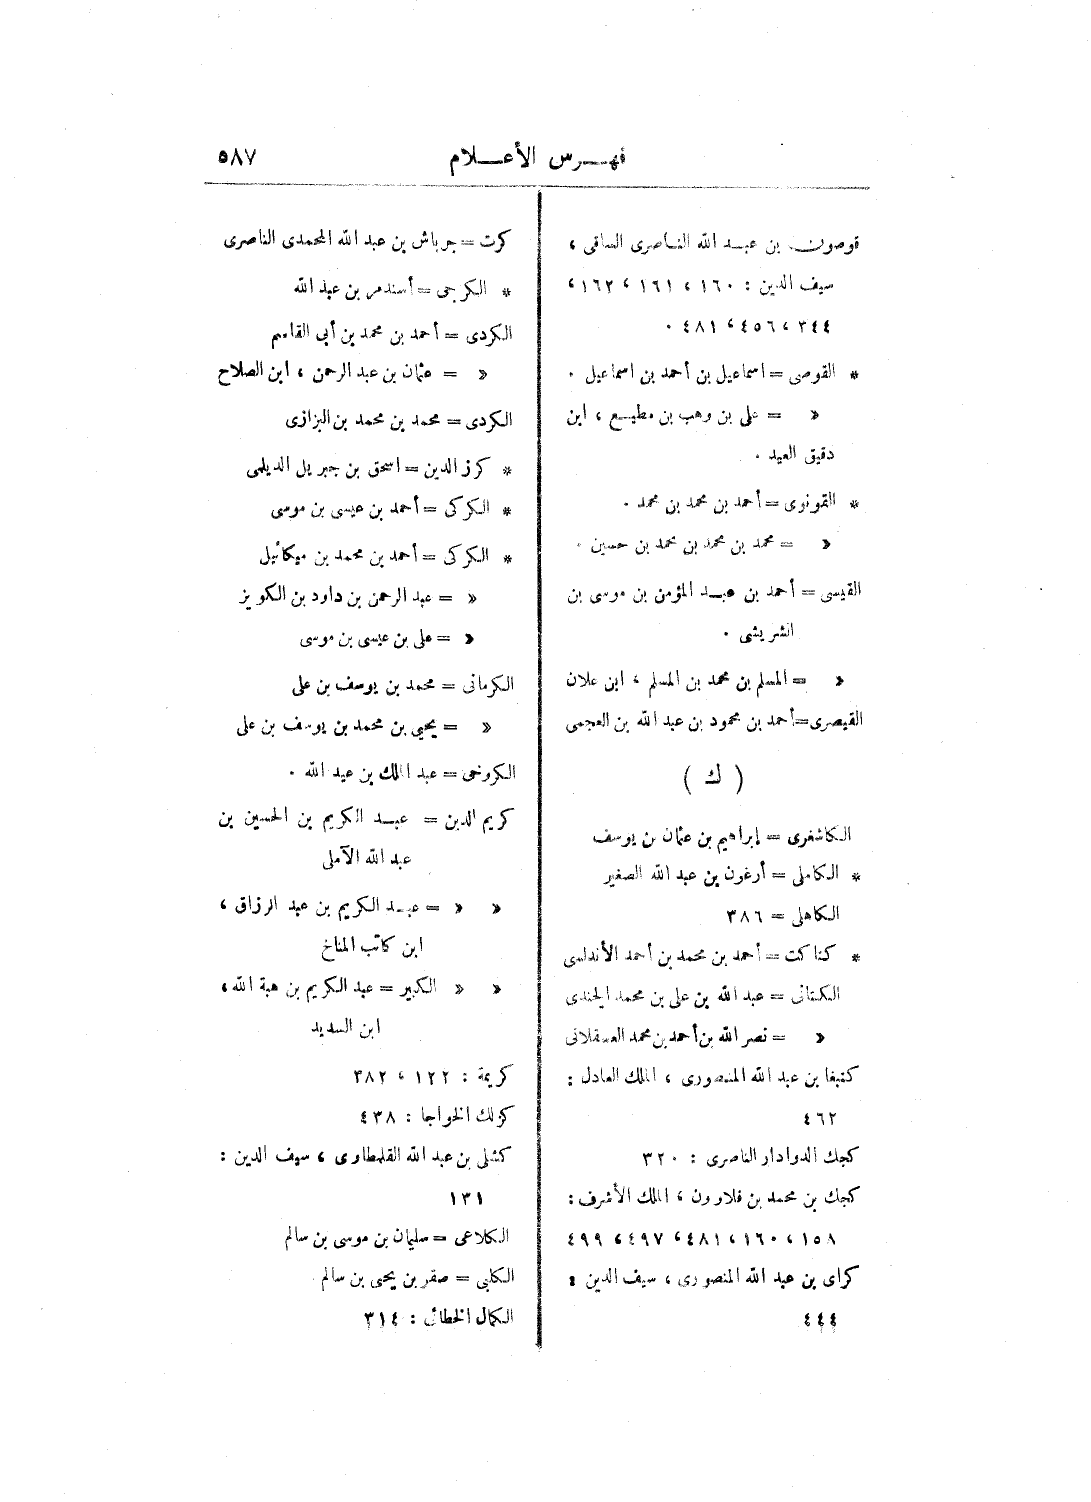 فهرس الأعلام
٥٨٧
قوصون بن عبد الله الناصرى الساقى ،
سيف الدين : ١٦٠ ، ١٦١ ، ١٦٢ ،
٣٤٤ ، ٤٥٦ ، ٤٨١ .
* القوصى = اسماعيل بن أحمد بن اسماعيل .
« = على بن وهب بن مطيع ، ابن
دقيق العيد .
* القونوى = أحمد بن محمد بن محمد .
« = محمد بن محمد بن محمد بن حسين .
القيسى = أحمد بن عبد المؤمن بن موسى بن
الشريشى .
« = المسلم بن محمد بن المسلم ، ابن علان
القيصرى = أحمد بن محمود بن عبد الله بن العجمى
( ك )
الكاشغرى = إبراهيم بن عثمان بن يوسف
* الكاملى = أرغون بن عبد الله الصغير
الكاهلى = ٣٨٦
* كتاكت = أحمد بن محمد بن أحمد الأندلسى
الكنانى = عبد الله بن على بن محمد الجندى
« = نصر الله بن أحمد بن محمد العسقلانى
كتبغا بن عبد الله المنصورى ، الملك العادل :
٤٦٢
كجك الدوادار الناصرى : ٣٢٠
كجك بن محمد بن قلاوون ، الملك الأشرف :
١٥٨ ، ١٦٠ ، ٤٨١ ، ٤٩٧ ، ٤٩٩
كراى بن عبد الله المنصورى ، سيف الدين :
٤٤٤
كرت = جرباش بن عبد الله المحمدى الناصرى
* الكرجى = أسندمر بن عبد الله
الكردى = أحمد بن محمد بن أبى القاسم
« = عثمان بن عبد الرحمن ، ابن الصلاح
الكردى = محمد بن محمد بن البزازى
* كرز الدين = اسحق بن جبريل الديلمى
* الكركى = أحمد بن عيسى بن موسى
* الكركى = أحمد بن محمد بن ميكائيل
« = عبد الرحمن بن داود بن الكويز
« = على بن عيسى بن موسى
الكرمانى = محمد بن يوسف بن على
« = يحيى بن محمد بن يوسف بن على
الكروخى = عبد الملك بن عبد الله .
كريم الدين = عبد الكريم بن الحسين بن
عبد الله الآملى
« « = عبد الكريم بن عبد الرزاق ،
ابن كاتب المناخ
« « الكبير = عبد الكريم بن هبة الله ،
ابن السديد
كريمة : ١٢٢ ، ٣٨٢
كزلك الخواجا : ٤٣٨
كشلى بن عبد الله القلمطاوى ، سيف الدين :
١٣١
الكلاعى = سليمان بن موسى بن سالم
الكلبى = صقر بن يحيى بن سالم .
الكمال الخطائى : ٣١٤